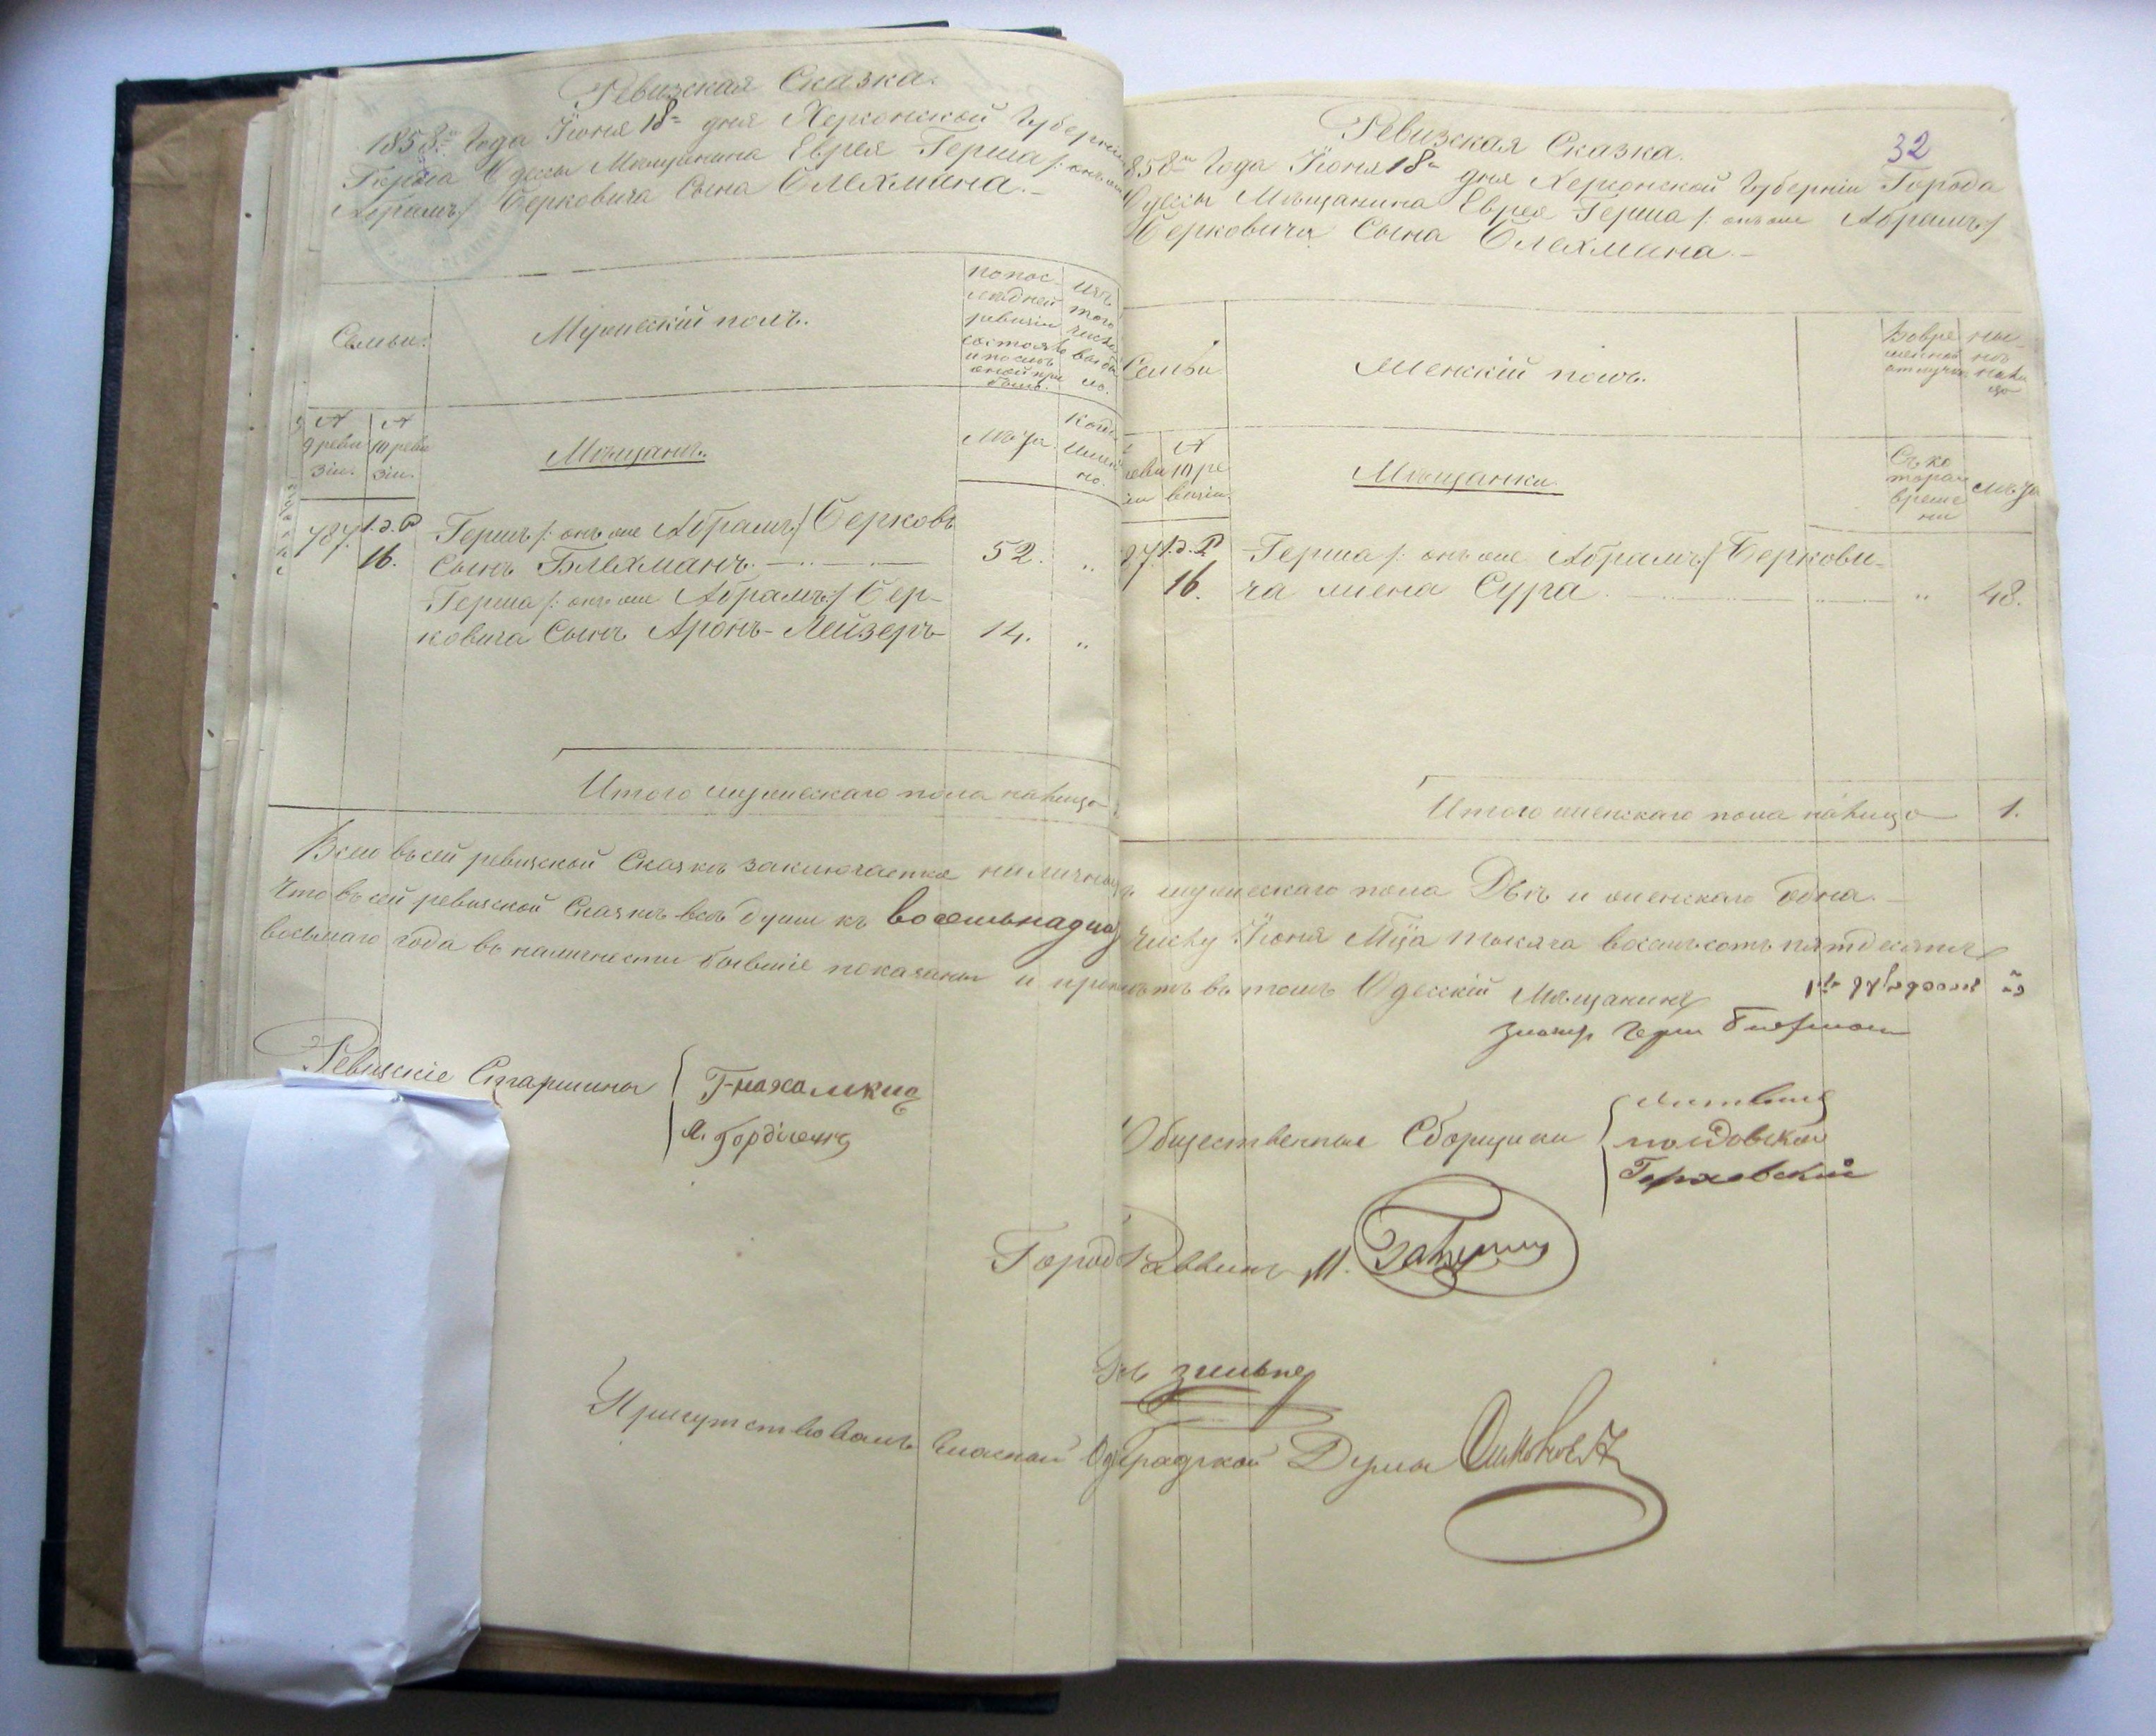 Ревизская Сказка.
1858го Года Іюня 18го дня Херсонской Губерніи
Города Одессы Мѣщанина Еврея Герша /: онъ же
Абрамъ:/ Берковича Сына Блехмана.
Семьи.
Мужескій полъ.
По последней ревизіи состояло и послѣ оной прибыло.
Изъ того числа выбыло.
№ 9 ревизіи.
№ 10 ревизіи.
Мѣщанъ.
Лѣта.
Когда именно.
787.
1.д.Р
16.
Гершъ /: онъ же Абрамъ:/ Берковъ
Сынъ Блехманъ.
52.
Герша /: онъ же Абрамъ:/ Бер-
ковича Сынъ Аронъ-Лейзеръ
14.
Итого мужескаго пола налицо
32
Ревизская Сказка.
858го Года Іюня 18го дня Херсонской Губерніи Города
Одессы Мѣщанина Еврея Герша /: онъ же Абрамъ:/
Берковича Сына Блехмана.
Семьи
Женскій полъ.
Во временной отлучке
Нынѣ налицо
№ 10 ревизіи.
Мѣщанки.
Съ котораго времени
Лѣта
87.
1.д.Р
16.
Герша /: онъ же Абрамъ:/ Беркови-
ча жена Сура
48.
Итого женскаго пола налицо
1.
Всего въ сей ревизской Сказкѣ заключается наличныхъ мужескаго пола Двѣ и женскаго Одна.
Что въ сей ревизской Сказкѣ всѣ души къ восемьнадцат числу Іюня Мца тысяча восемьсотъ пятдесятъ
восьмаго года въ наличности бывшіе показаны и въ томъ Одесскій Мѣщанинъ
Ревизскіе Старшины
Общественные Сборщики
Город Раввинъ М.
Присутствовалъ Гласный Од Градской Думы